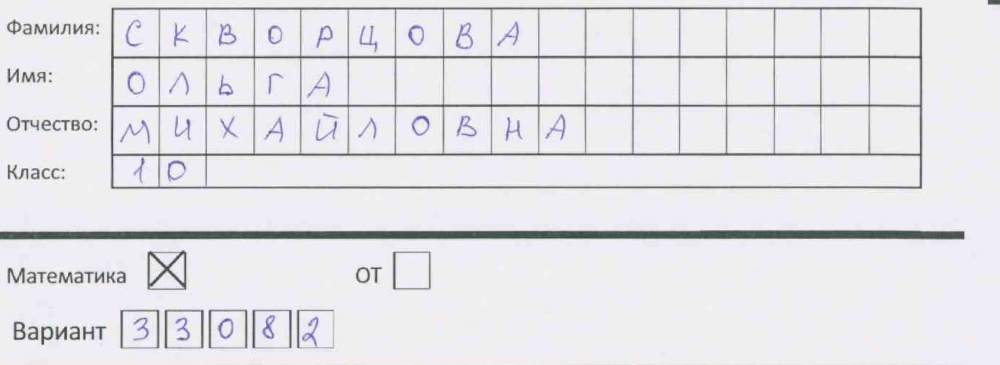 Фамилия: СКВОРЦОВА
Имя: ОЛЬГА
Отчество: МИХАЙЛОВНА
Класс: 10
Математика ☒ ОТ ☐
Вариант 33082